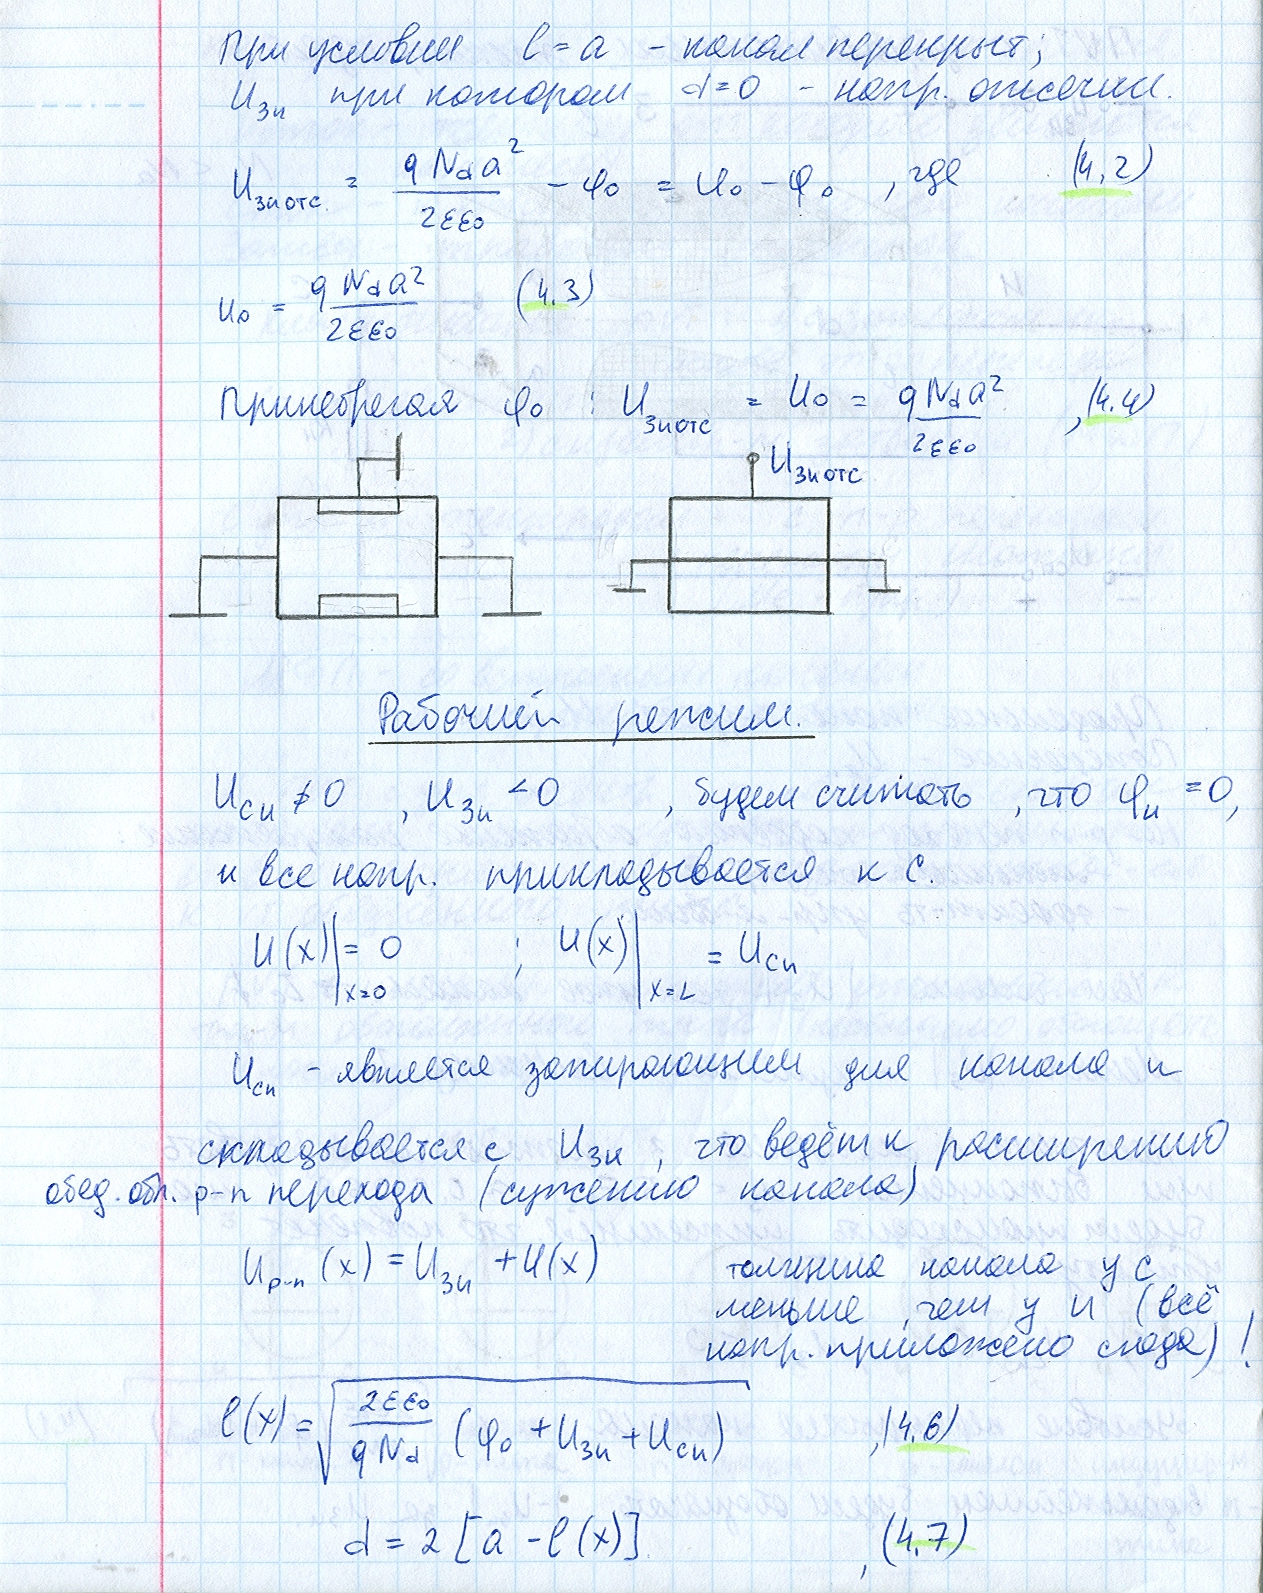 При условии l = a - канал перекрыт;
Uзи при котором d=0 - напр. отсечки.
Uзи отс. = qNda²/2εε₀ - φ₀ = U₀ - φ₀ , где (4,2)
U₀ = qNda²/2εε₀ (4.3)
Принебрегая φ₀ : Uзи отс = U₀ = qNda²/2εε₀ , (4.4)
Uзи отс
Рабочий режим.
Uси ≠ 0 , Uзи < 0 , будем считать , что φи = 0,
и все напр. прикладывается к С.
U(x)|x=0 = 0 ; U(x)|x=L = Uси
Uси - является запирающим для канала и
складывается с Uзи , что ведёт к расширению
обед. обл. p-n перехода (сужению канала)
Up-n (x) = Uзи + U(x)
толщина канала у С
меньше , чем у И (всё
напр. приложено сюда) !
l(x) = √(2εε₀/qNd (φ₀ + Uзи + Uси)) , (4.6)
d = 2 [a - l(x)] , (4.7)